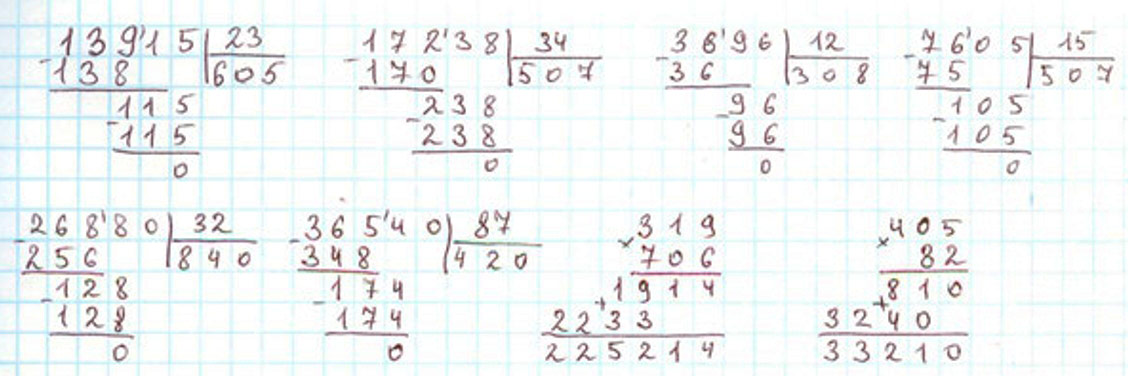 13915 23
138 605
115
115
0
17238 34
170 507
238
238
0
3696 12
36 308
96
96
0
7605 15
75 507
105
105
0
26880 32
256 840
128
128
0
36540 87
348 420
174
174
0
319
× 706
1914
+ 2233
225214
405
× 82
810
+ 3240
33210